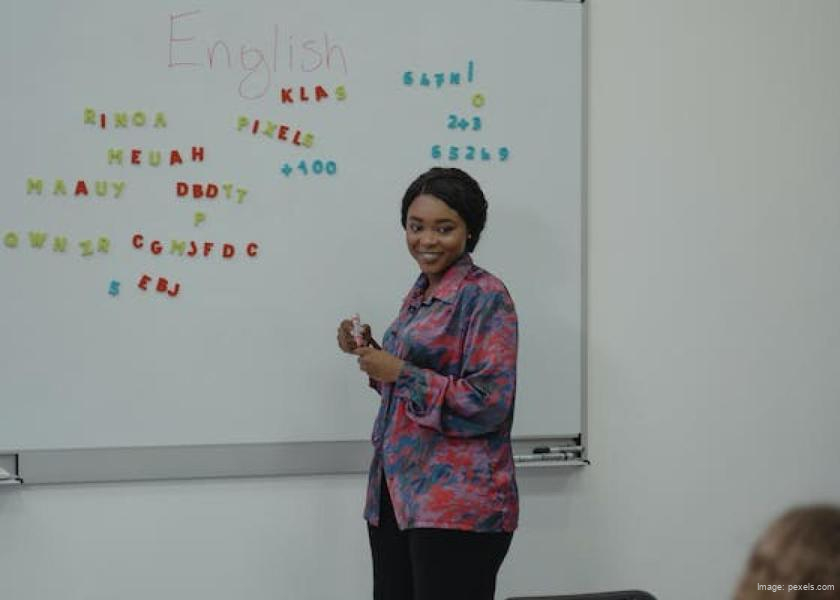 English
KLAS
RINOA
PIXELS
MEUAH
+400
MAAUY
DBDYT7
P
CGMJFDC
5
EBJ
O
2+3
65269
Image: pexels.com